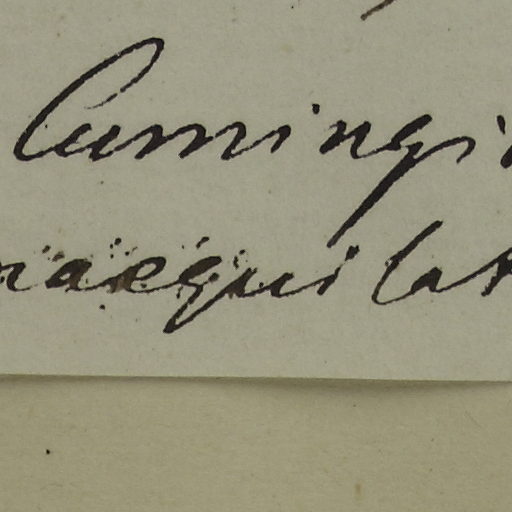 Cumingi
naequilat